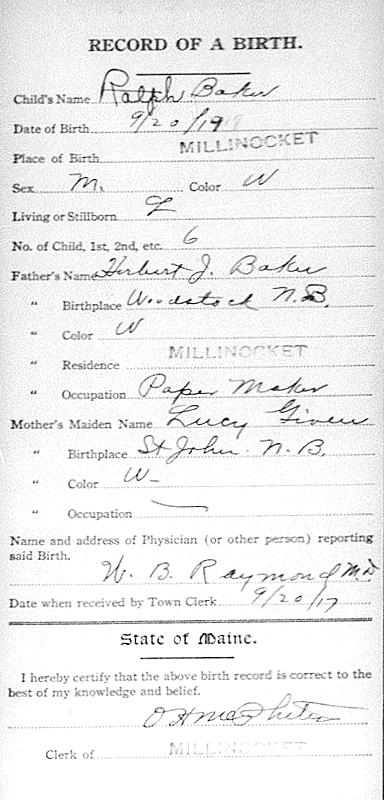 RECORD OF A BIRTH.
Child's Name Ralph Baker
Date of Birth 9/20/19
MILLINOCKET
Place of Birth
Sex M. Color W
Living or Stillborn L
No. of Child, 1st, 2nd, etc. 6
Father's Name Herbert J. Baker
" Birthplace Woodstock N.B.
" Color W
MILLINOCKET
" Residence
" Occupation Paper Maker
Mother's Maiden Name Lucy Given
" Birthplace St John N.B.
" Color W
" Occupation —
Name and address of Physician (or other person) reporting
said Birth.
W. B. Raymond M.D
Date when received by Town Clerk 9/20/17
State of Maine.
I hereby certify that the above birth record is correct to the
best of my knowledge and belief.
Clerk of MILLINOCKET